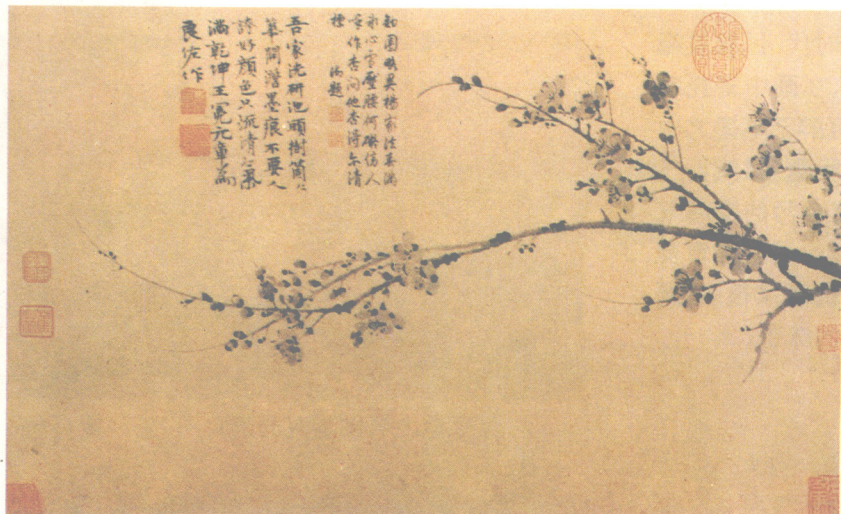 鉤圈略異楊家法春滿
冰心雪壓腰何礙傍人
喚作杏問他杏得尒清
標 御題
吾家洗研池頭樹箇々
華開澹墨痕不要人
誇好顏色只流清氣
滿乾坤王冕元章為
良佐作